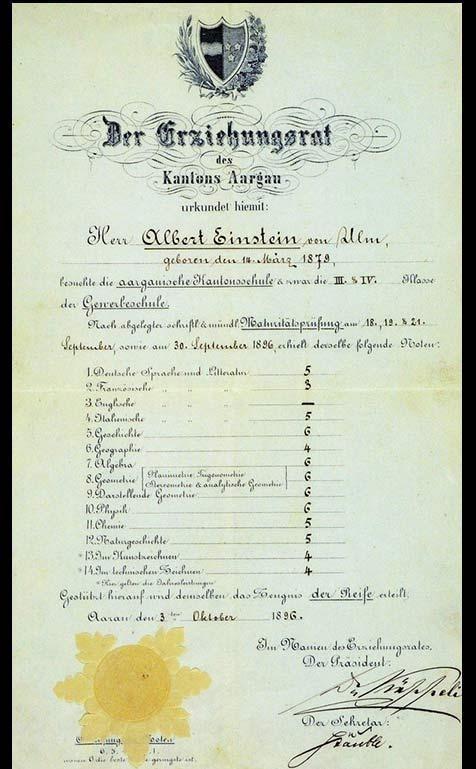 Der Erziehungsrat
des
Kantons Aargau
urkundet hiemit:
Herr Albert Einstein von Ulm,
geboren den 14. März 1879,
besuchte die aargauische Kantonsschule & zwar die III. & IV. Klasse
der Gewerbeschule.
Nach abgelegter schriftl. & mündl. Maturitätsprüfung am 18., 19. & 21.
September, sowie am 30. September 1896, erhielt derselbe folgende Noten:
1. Deutsche Sprache und Litteratur 5
2. Französische „ „ „ 3
3. Englische „ „ „ —
4. Italienische „ „ „ 5
5. Geschichte 6
6. Geographie 4
7. Algebra 6
8. Geometrie Planimetrie, Trigonometrie 6
Stereometrie & analytische Geometrie 6
9. Darstellende Geometrie 6
10. Physik 6
11. Chemie 5
12. Naturgeschichte 5
* 13. Im Kunstzeichnen 4
* 14. Im technischen Zeichnen 4
* Hier gelten die Jahresleistungen
Gestützt hierauf wird demselben das Zeugnis der Reife erteilt.
Aarau den 3ten Oktober 1896.
Im Namen des Erziehungsrates,
Der Präsident:
Der Sekretär:
Stäuble.
geringste ist.